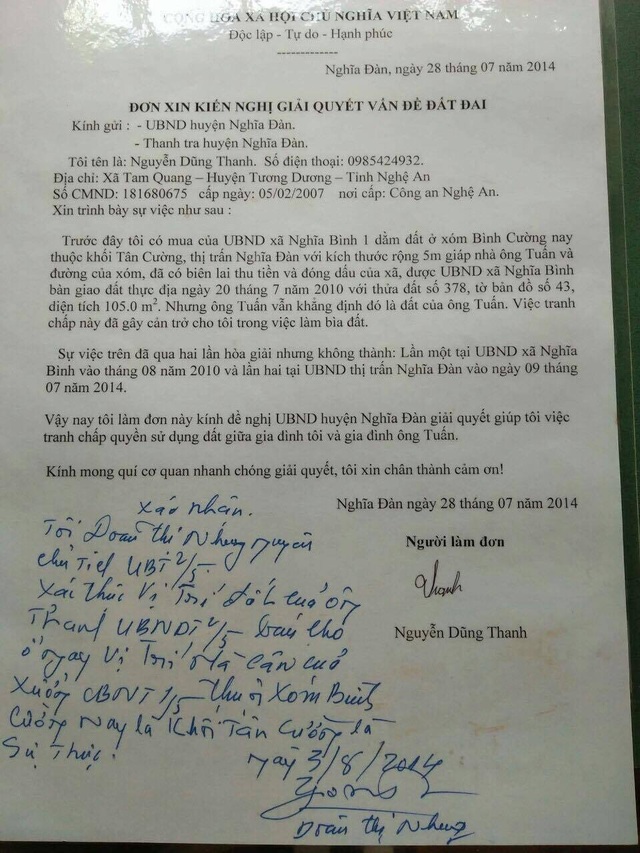 CỘNG HÒA XÃ HỘI CHỦ NGHĨA VIỆT NAM
Độc lập - Tự do - Hạnh phúc
-------------
Nghĩa Đàn, ngày 28 tháng 07 năm 2014
ĐƠN XIN KIẾN NGHỊ GIẢI QUYẾT VẤN ĐỀ ĐẤT ĐAI
Kính gửi : - UBND huyện Nghĩa Đàn.
- Thanh tra huyện Nghĩa Đàn.
Tôi tên là: Nguyễn Dũng Thanh. Số điện thoại: 0985424932.
Địa chỉ: Xã Tam Quang – Huyện Tương Dương – Tỉnh Nghệ An
Số CMND: 181680675 cấp ngày: 05/02/2007 nơi cấp: Công an Nghệ An.
Xin trình bày sự việc như sau :
Trước đây tôi có mua của UBND xã Nghĩa Bình 1 dằm đất ở xóm Bình Cường nay
thuộc khối Tân Cường, thị trấn Nghĩa Đàn với kích thước rộng 5m giáp nhà ông Tuấn và
đường của xóm, đã có biên lai thu tiền và đóng dấu của xã, được UBND xã Nghĩa Bình
bàn giao đất thực địa ngày 20 tháng 7 năm 2010 với thửa đất số 378, tờ bản đồ số 43,
diện tích 105.0 m². Nhưng ông Tuấn vẫn khẳng định đó là đất của ông Tuấn. Việc tranh
chấp này đã gây cản trở cho tôi trong việc làm bìa đất.
Sự việc trên đã qua hai lần hòa giải nhưng không thành: Lần một tại UBND xã Nghĩa
Bình vào tháng 08 năm 2010 và lần hai tại UBND thị trấn Nghĩa Đàn vào ngày 09 tháng
07 năm 2014.
Vậy nay tôi làm đơn này kính đề nghị UBND huyện Nghĩa Đàn giải quyết giúp tôi việc
tranh chấp quyền sử dụng đất giữa gia đình tôi và gia đình ông Tuấn.
Kính mong quí cơ quan nhanh chóng giải quyết, tôi xin chân thành cảm ơn!
Nghĩa Đàn ngày 28 tháng 07 năm 2014
Người làm đơn
Thanh
Nguyễn Dũng Thanh
Xác nhân.
Tôi Doãn thị Nhung nguyên
chủ tịch
Xác thực vị trí đất của ông
Thanh bán cho
ở ngay vị trí nhà cân cuả
Xưởng thuộc Xóm Bình
Cường nay là Khối Tân Cường là
Sự thực.
ngày 3/8/2014
Doãn thị Nhung